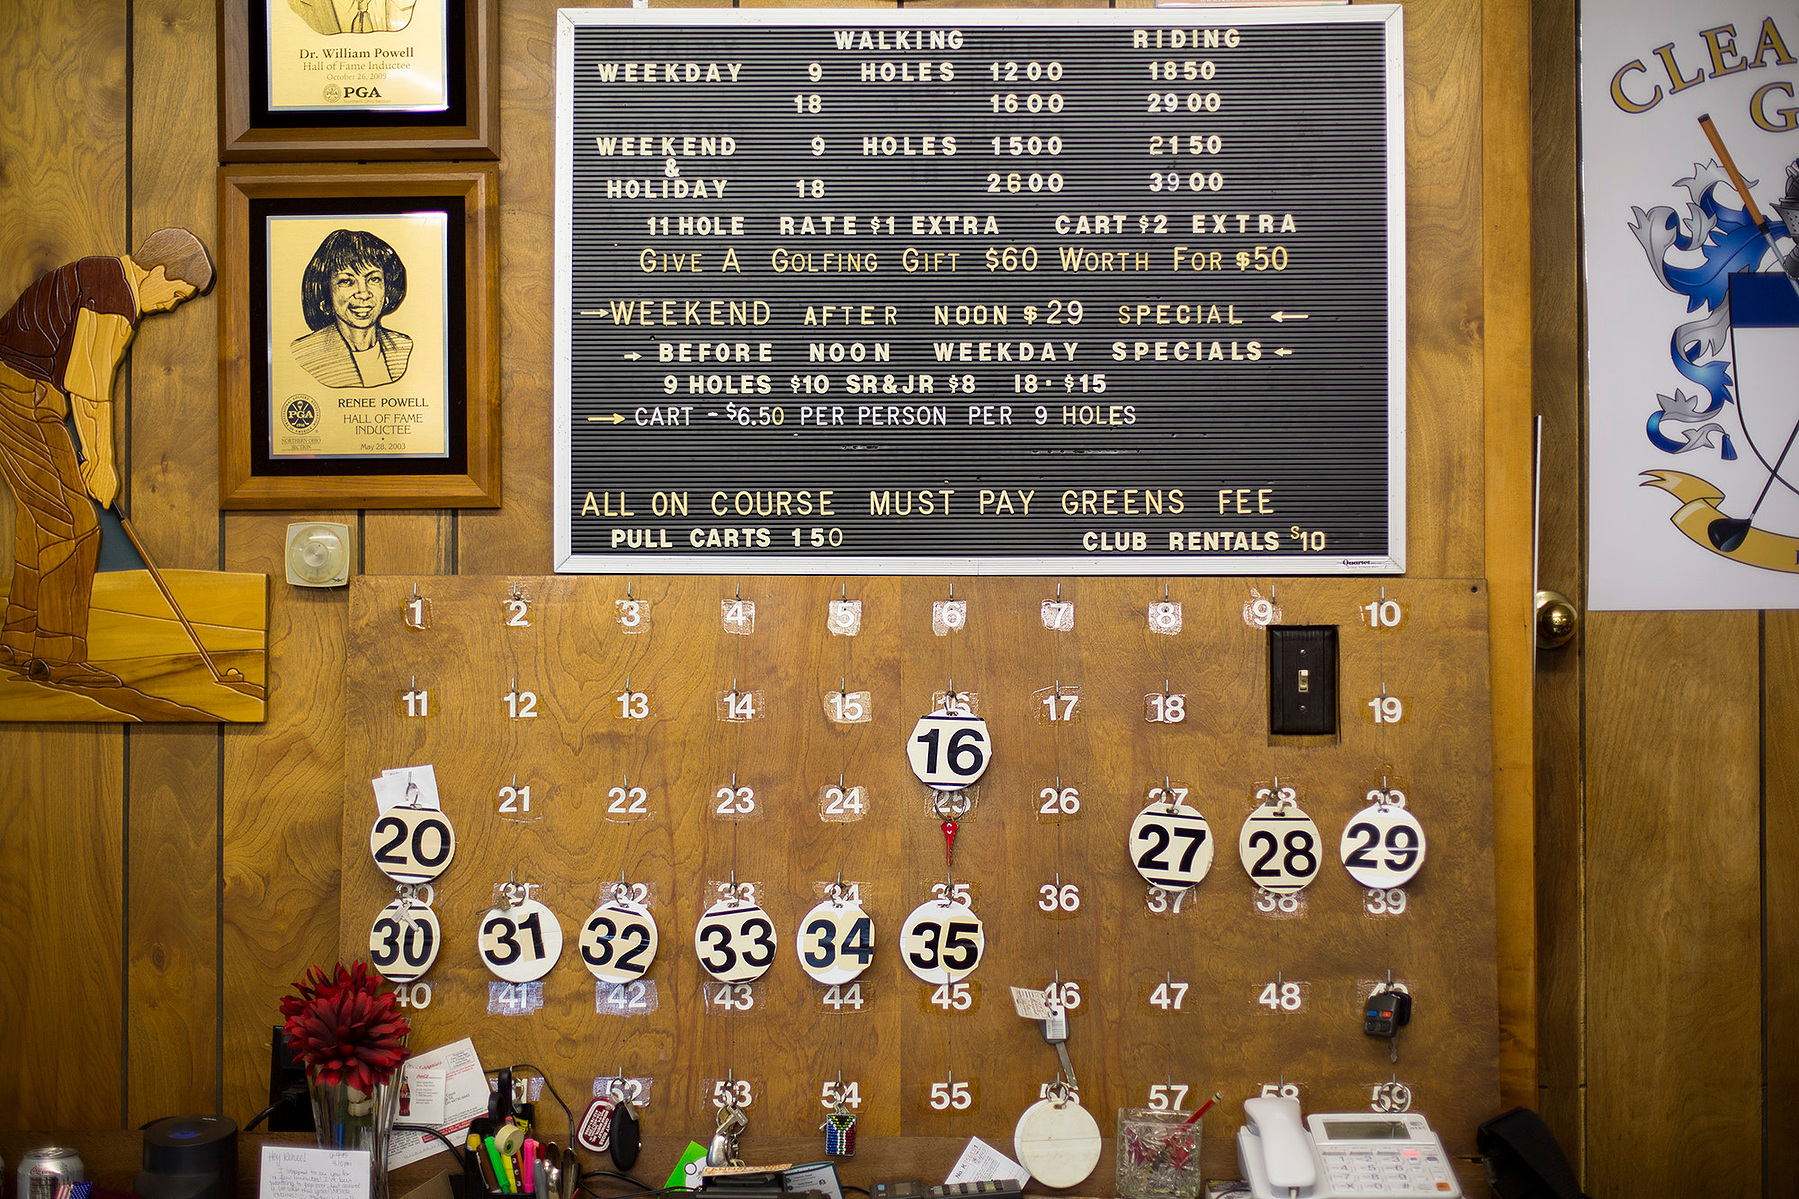 Dr. William Powell
Hall of Fame Inductee
October 26, 2009
PGA
RENEE POWELL
HALL OF FAME
INDUCTEE
May 28, 2003
PGA
NORTHERN OHIO
SECTION
WALKING RIDING
WEEKDAY 9 HOLES 1200 1850
18 1600 2900
WEEKEND 9 HOLES 1500 2150
&
HOLIDAY 18 2600 3900
11 HOLE RATE $1 EXTRA CART $2 EXTRA
GIVE A GOLFING GIFT $60 WORTH FOR $50
→WEEKEND AFTER NOON $29 SPECIAL ←
→ BEFORE NOON WEEKDAY SPECIALS ←
9 HOLES $10 SR&JR $8 18 · $15
→ CART - $6.50 PER PERSON PER 9 HOLES
ALL ON COURSE MUST PAY GREENS FEE
PULL CARTS 150 CLUB RENTALS $10
Quartet
CLEA
G
1 2 3 4 5 6 7 8 9 10
11 12 13 14 15 16 17 18 19
16
21 22 23 24 25 26 27 28 29
20 27 28 29
30 31 32 33 34 35 36 37 38 39
30 31 32 33 34 35
40 41 42 43 44 45 46 47 48 49
52 53 54 55 57 58 59
Hey Renee!